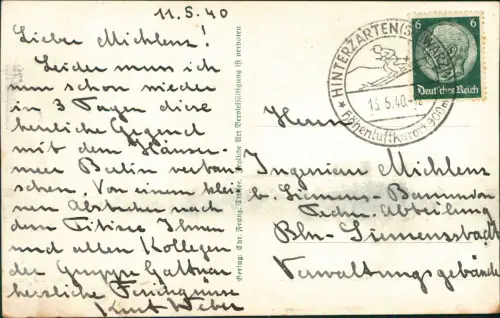 11.5.40
Lieber Michlenz!
Leider muss ich
nun schon wieder
in 3 Tagen diese
herrliche Gegend
mit dem Häuser-
meer Berlin vertau-
schen. Von einem klei-
nen Abstecher nach
dem Titisee Ihnen
und allen Kollegen
der Gruppe
herzliche Feriengrüsse
Kurt Weber
Verlag: Chr. Franz,
jegliche Art Vervielfältigung ist verboten
HINTERZARTEN (SCHWARZW
13.5.40.-12
Höhenluftkurort 900 m
6 6
Deutsches Reich
Herrn
Ingenieur Michlenz
b. Siemens-Bauunion
Techn. Abteilung
Bln-Siemensstadt
Verwaltungsgebäude